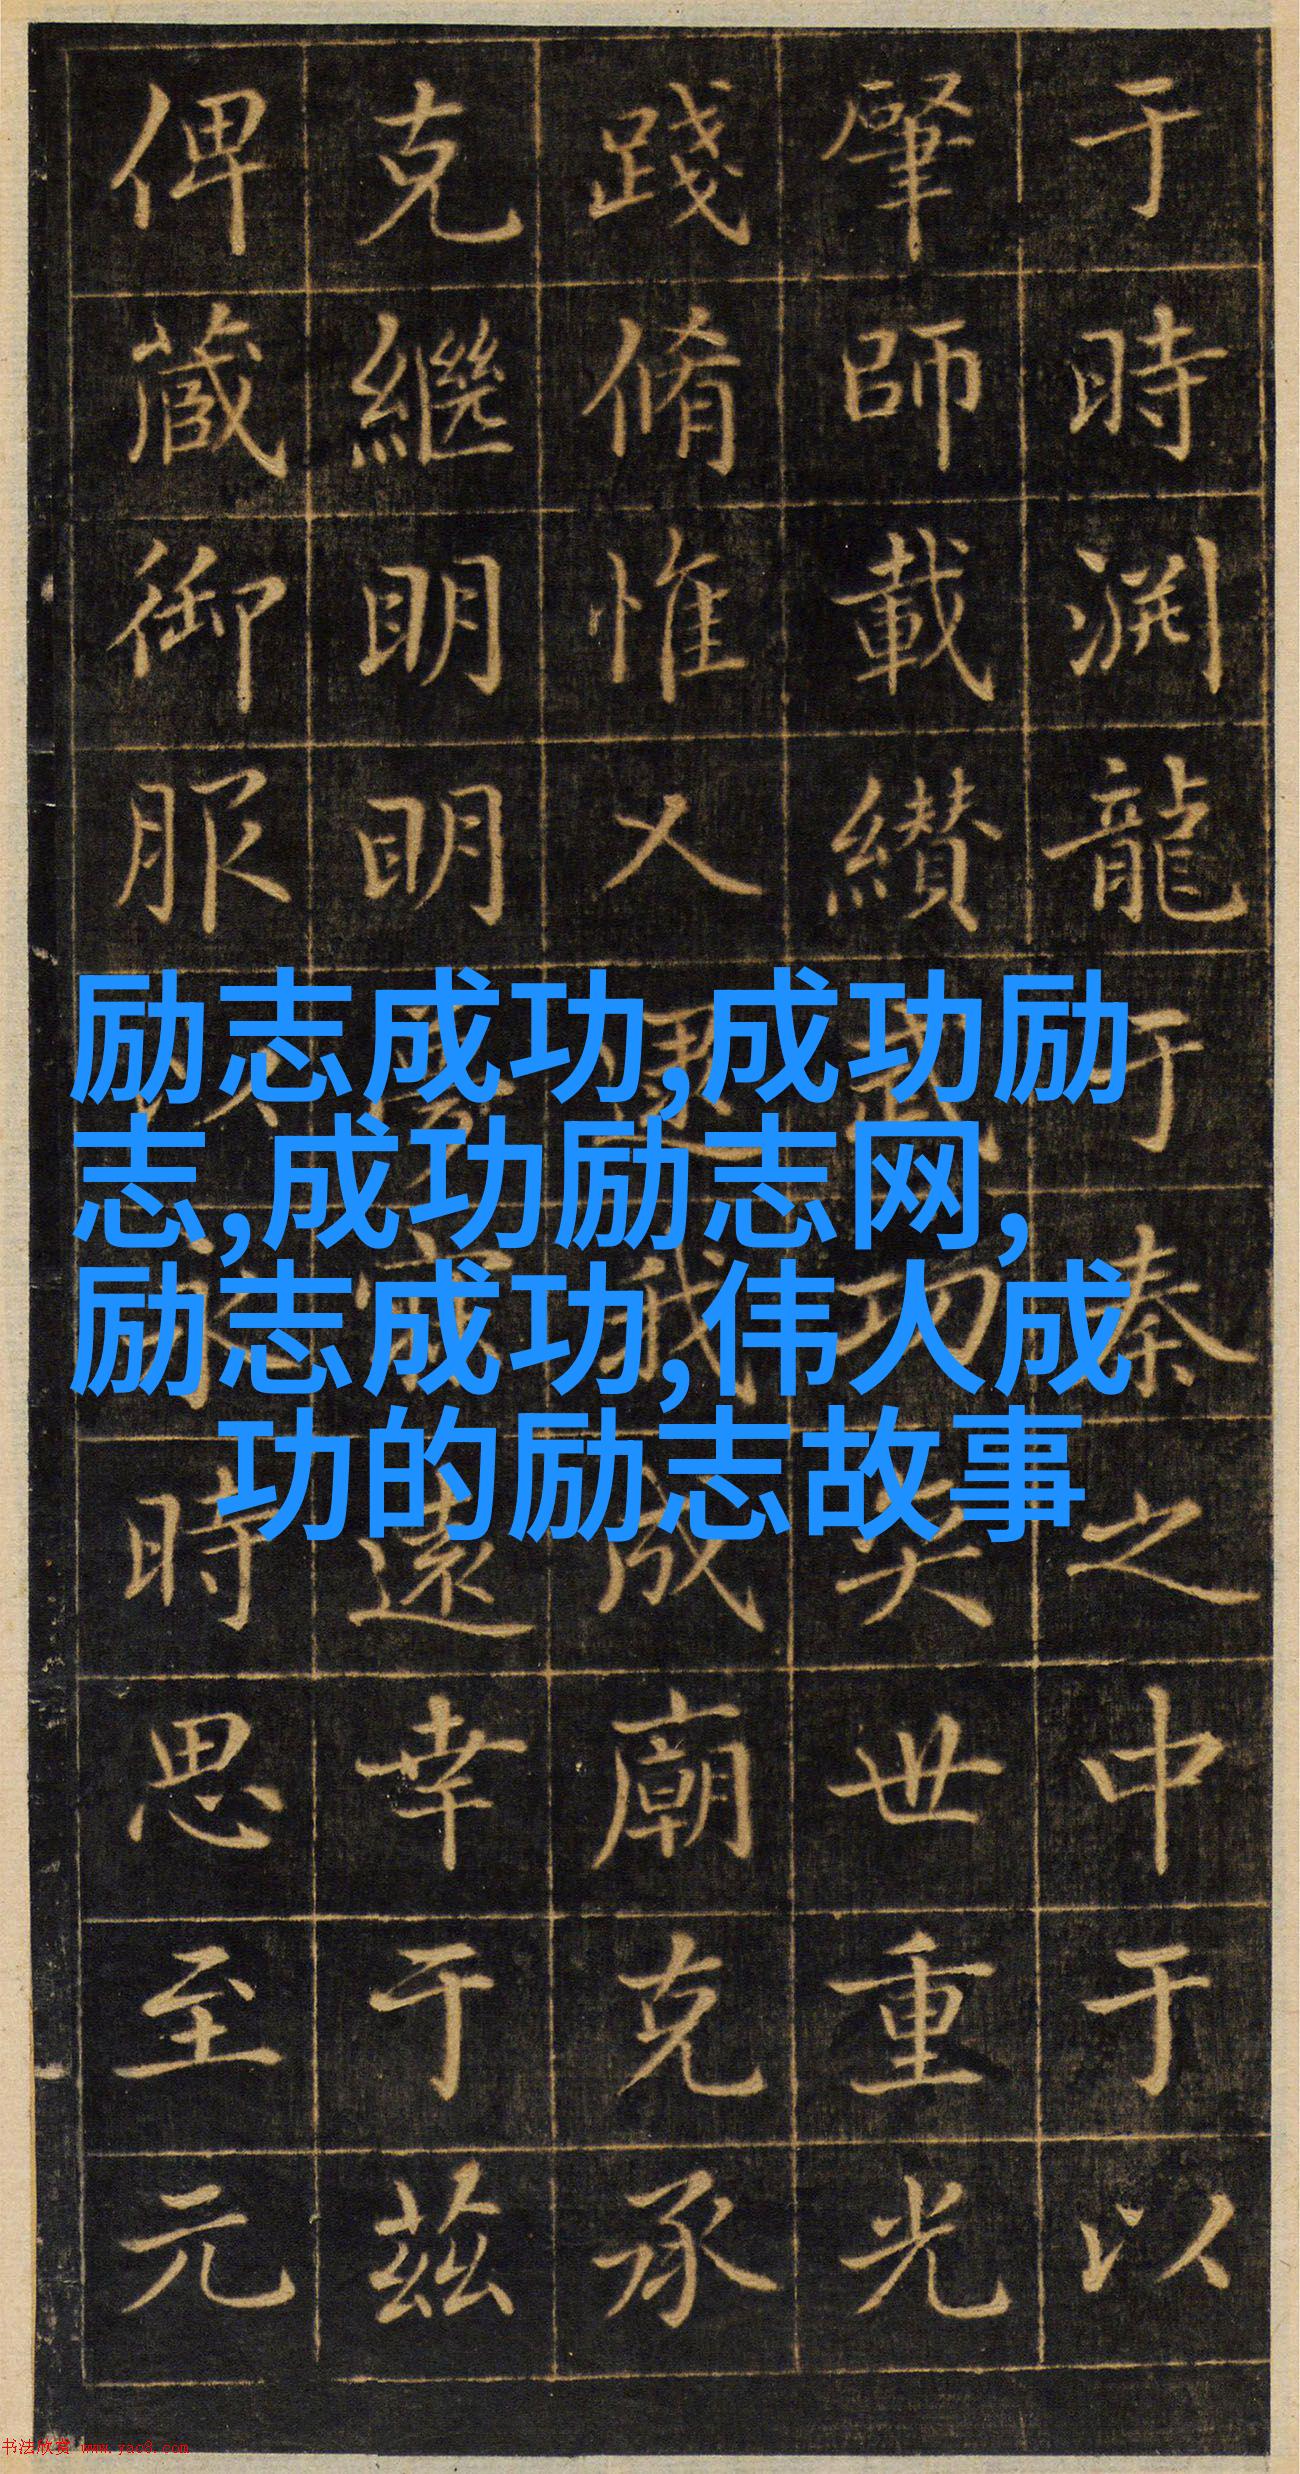 于時渊龍于秦之中于以
肇師載纘武功奕世重光
踐脩惟乂我成廟克承
克繼明明遠幸于兹
俾蔵御服時思至元
励志成功,成功励
志,成功励志网,
励志成功,伟人成
功的励志故事
书法欣赏 www.yac8.com